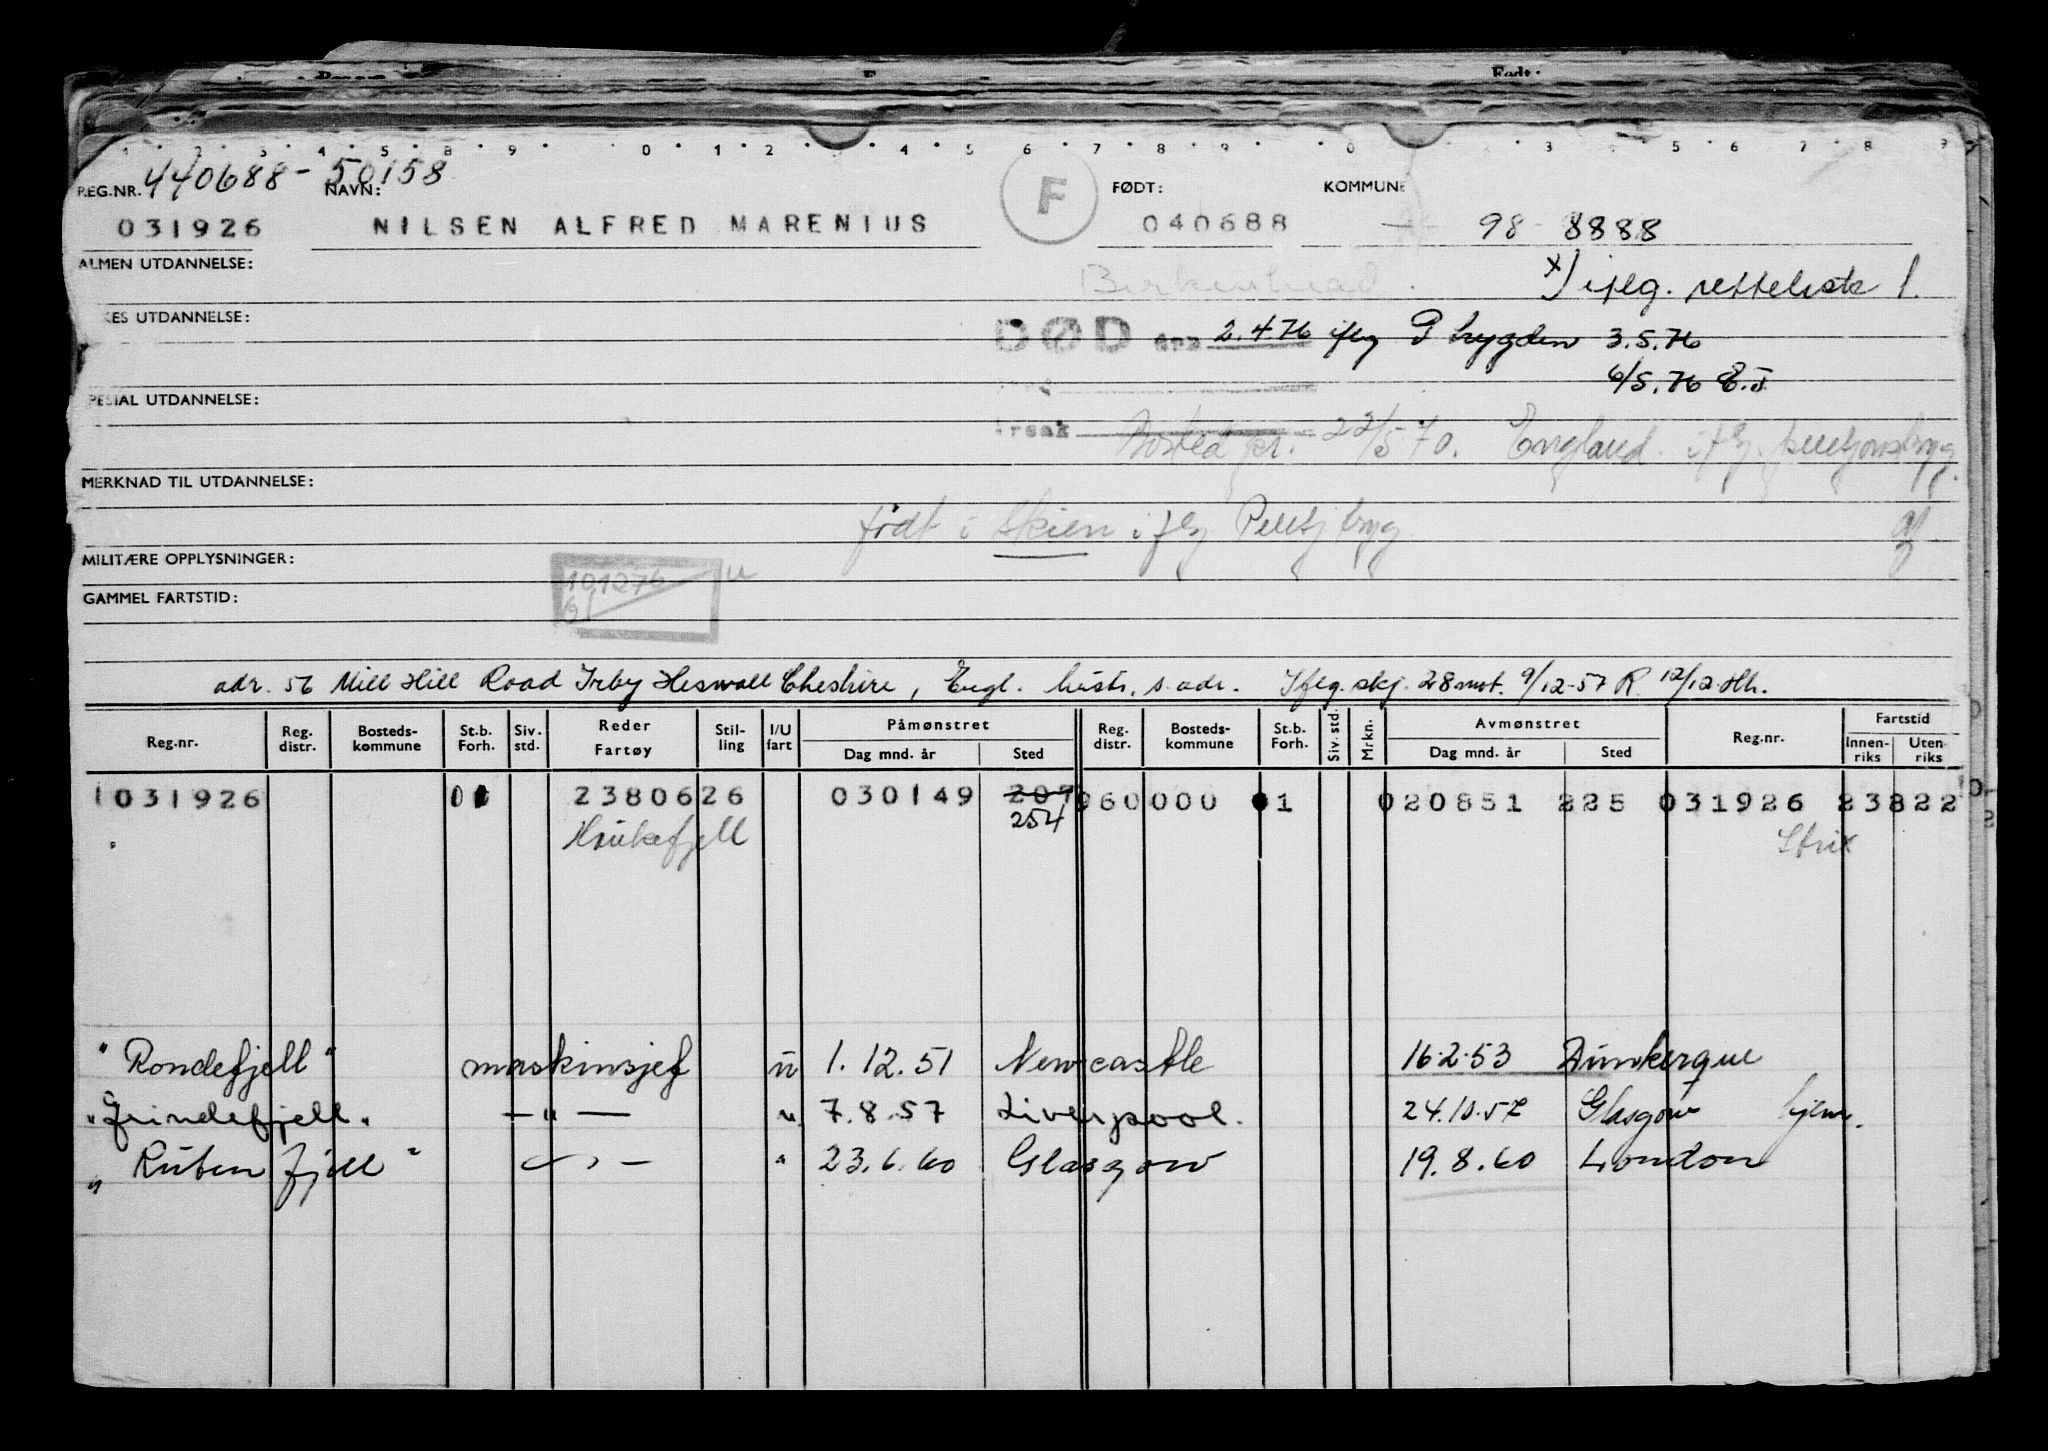 440688-50158
REG.NR. NAVN: F FØDT: KOMMUNE
031926 NILSEN ALFRED MARENIUS 040688 98-8888
ALMEN UTDANNELSE:
Birkenhead x) iflg. retteliste 1.
UTDANNELSE:
DØD den 2.4.76 iflg P trygden 3.5.76
6/5.76
SPESIAL UTDANNELSE:
årsak Bosted pr. 22/5 70. England iflg. pensjonstryg.
MERKNAD TIL UTDANNELSE:
født i Skien iflg Pensj tryg
MILITÆRE OPPLYSNINGER:
101276
GAMMEL FARTSTID:
adr. 56 Mill Hill Road Irby Heswall Cheshire, Engl. hustr. s. adr. Iflg. skj. 28 mot. 9/12-57 R. 12/12. Hh.
Reg.nr. Reg. distr. Bosteds-kommune St.b. Forh. Siv. std. Reder Fartøy Stil-ling I/U fart Påmønstret Dag mnd. år Sted Reg. distr. Bosteds-kommune St.b. Forh. Siv. std. Mrkn. Avmønstret Dag mnd. år Sted Reg.nr. Fartstid Innen-riks Uten-riks
031926 23806 26 030149 207 960 000 1 020851 225 031926 23822
Haukefjell 254
"Rondefjell" maskinsjef u 1.12.51 Newcastle 16.2.53 Dunkerque
"Grindefjell" -"- " 7.8.57 Liverpool. 24.10.57 Glasgow hjem.
"Ruten fjell" " 23.6.60 Glasgow 19.8.60 London